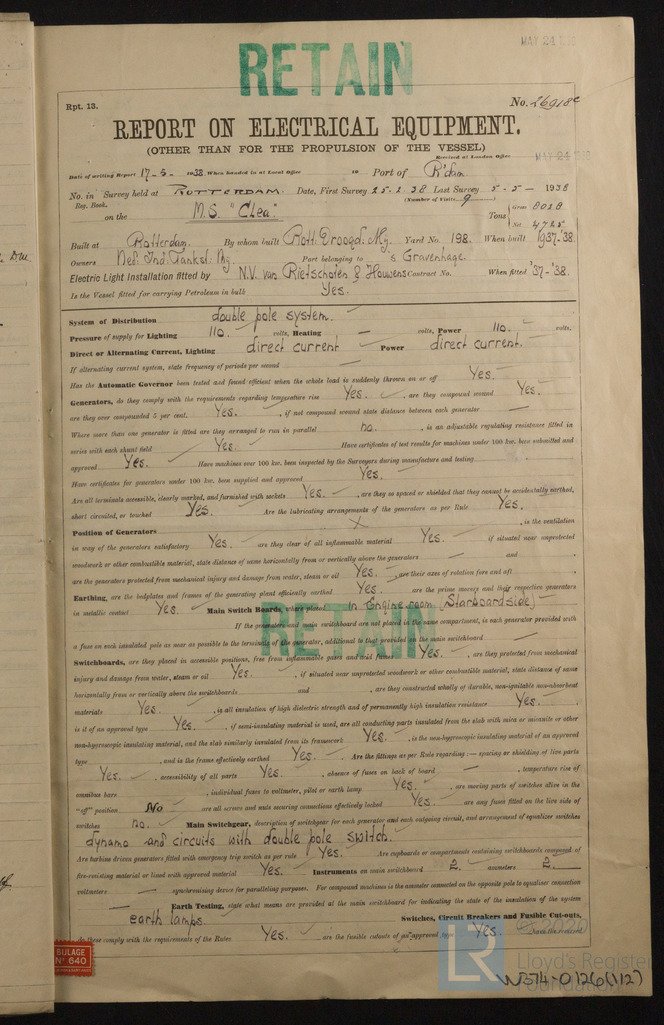 MAY 24
RETAIN
Rpt. 13.
No. 26918c
REPORT ON ELECTRICAL EQUIPMENT.
(OTHER THAN FOR THE PROPULSION OF THE VESSEL)
Received at London Office MAY 24
Date of writing Report 17-5- 1938 When handed in at Local Office 19 Port of R'dam
No. in Survey held at ROTTERDAM. Date, First Survey 25.2.38 Last Survey 5-5- 1938
Reg. Book. (Number of Visits 9)
on the M.S. "Clea" Tons Gross 8028
Net 4725
Built at Rotterdam. By whom built Rott. Droogd. My. Yard No. 198. When built 1937-'38.
Owners Ned. Ind. Tanksl. My. Port belonging to s Gravenhage.
Electric Light Installation fitted by N.V. van Rietschoten & Houwens Contract No. When fitted '37-'38.
Is the Vessel fitted for carrying Petroleum in bulk Yes.
System of Distribution double pole system.
Pressure of supply for Lighting 110. volts, Heating — volts, Power 110. volts.
Direct or Alternating Current, Lighting direct current Power direct current.
If alternating current system, state frequency of periods per second —
Has the Automatic Governor been tested and found efficient when the whole load is suddenly thrown on or off Yes.
Generators, do they comply with the requirements regarding temperature rise Yes. , are they compound wound Yes.
are they over compounded 5 per cent. Yes. , if not compound wound state distance between each generator —
Where more than one generator is fitted are they arranged to run in parallel no. , is an adjustable regulating resistance fitted in
series with each shunt field Yes. Have certificates of test results for machines under 100 kw. been submitted and
approved Yes. Have machines over 100 kw. been inspected by the Surveyors during manufacture and testing
Have certificates for generators under 100 kw. been supplied and approved Yes.
Are all terminals accessible, clearly marked, and furnished with sockets Yes. , are they so spaced or shielded that they cannot be accidentally earthed,
short circuited, or touched Yes. Are the lubricating arrangements of the generators as per Rule Yes.
Position of Generators , is the ventilation
in way of the generators satisfactory Yes. are they clear of all inflammable material Yes. if situated near unprotected
woodwork or other combustible material, state distance of same horizontally from or vertically above the generators — and ,
are the generators protected from mechanical injury and damage from water, steam or oil Yes. , are their axes of rotation fore and aft Yes.
Earthing, are the bedplates and frames of the generating plant efficiently earthed Yes. are the prime movers and their respective generators
in metallic contact Yes. Main Switch Boards, where placed in Engine room (Starboardside)
If the generators and main switchboard are not placed in the same compartment, is each generator provided with
a fuse on each insulated pole as near as possible to the terminals of the generator, additional to that provided on the main switchboard —
RETAIN
Switchboards, are they placed in accessible positions, free from inflammable gases and acid fumes Yes. , are they protected from mechanical
injury and damage from water, steam or oil Yes. , if situated near unprotected woodwork or other combustible material, state distance of same
horizontally from or vertically above the switchboards and , are they constructed wholly of durable, non-ignitable non-absorbent
materials Yes. , is all insulation of high dielectric strength and of permanently high insulation resistance Yes.
is it of an approved type Yes. , if semi-insulating material is used, are all conducting parts insulated from the slab with mica or micanite or other
non-hygroscopic insulating material, and the slab similarly insulated from its framework Yes. , is the non-hygroscopic insulating material of an approved
type , and is the frame effectively earthed Yes. Are the fittings as per Rule regarding:— spacing or shielding of live parts
Yes. , accessibility of all parts Yes. , absence of fuses on back of board — , temperature rise of
omnibus bars , individual fuses to voltmeter, pilot or earth lamp Yes. , are moving parts of switches alive in the
"off" position No are all screws and nuts securing connections effectively locked Yes. are any fuses fitted on the live side of
switches no. Main Switchgear, description of switchgear for each generator and each outgoing circuit, and arrangement of equaliser switches
dynamo and circuits with double pole switch.
Are turbine driven generators fitted with emergency trip switch as per rule Yes. Are cupboards or compartments containing switchboards composed of
fire-resisting material or lined with approved material Yes. Instruments on main switchboard 2. ammeters 2.
voltmeters — synchronising device for paralleling purposes. For compound machines is the ammeter connected on the opposite pole to equaliser connection
— Earth Testing, state what means are provided at the main switchboard for indicating the state of the insulation of the system
earth lamps. Switches, Circuit Breakers and Fusible Cut-outs,
do these comply with the requirements of the Rules Yes. are the fusible cutouts of an approved type Yes. Have the reversed
BULAGE
Nº 640
© 2020
LR Lloyd's Register
Foundation
W574-0126(1/2)